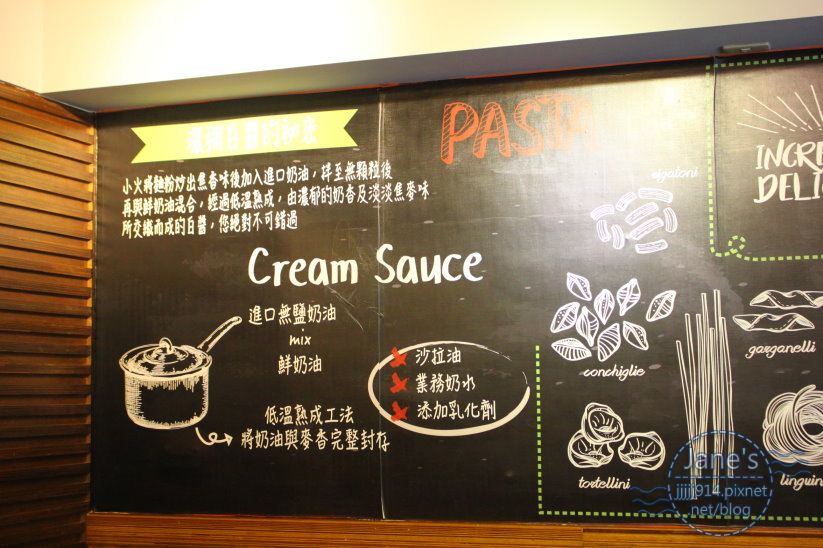 濃稠白醬的初衷
小火將麵粉炒出焦香味後加入進口奶油，拌至無顆粒後
再與鮮奶油混合，經過低溫熟成，由濃郁的奶香及淡淡焦麥味
所交織而成的白醬，您絕對不可錯過
Cream Sauce
進口無鹽奶油
mix
鮮奶油
低溫熟成工法
將奶油與麥香完整封存
沙拉油
業務奶水
添加乳化劑
PASTA
rigatoni
conchiglie
garganelli
tortellini
linguin
INCRE
DELIC
Jane's
jjjjj914.pixnet
net/blog